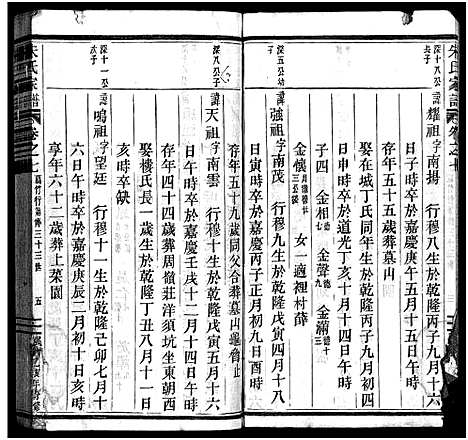 朱氏家譜 卷之七
深十八公
長子
諱耀祖字南揚 行穆八生於乾隆戊寅九月十六
日午時卒於嘉慶庚午五月十五日午時
存年五十五歲葬墓山
娶在城丁氏同年生於乾隆丙子九月初四
日申時卒於道光丁亥十月十四日午時
子四 金相七德 金聲九德 金滿十德
金懷 三公後 女一適裡村薛
深五公幼
子
諱強祖字南茂 行穆九生於乾隆戊寅四月十八
日寅時卒於嘉慶丙子正月初九日酉時
存年五十九歲同父合葬墓山龜首止
深八公子
諱天祖字南雲 行穆十生於乾隆戊寅五月十六
日午時卒於嘉慶壬戌十二月十四日午時
存年四十四歲葬周嶺莊洋須坑坐東朝西
娶樓氏長一歲生於乾隆丁丑八月十一日
亥時卒缺
深十一公
次子
諱鳴祖字望廷 行穆十一生於乾隆己卯七月十
六日午時卒於嘉慶庚辰二月初十日亥時
享年六十二歲葬上菜園
朱氏家譜 卷之七 五